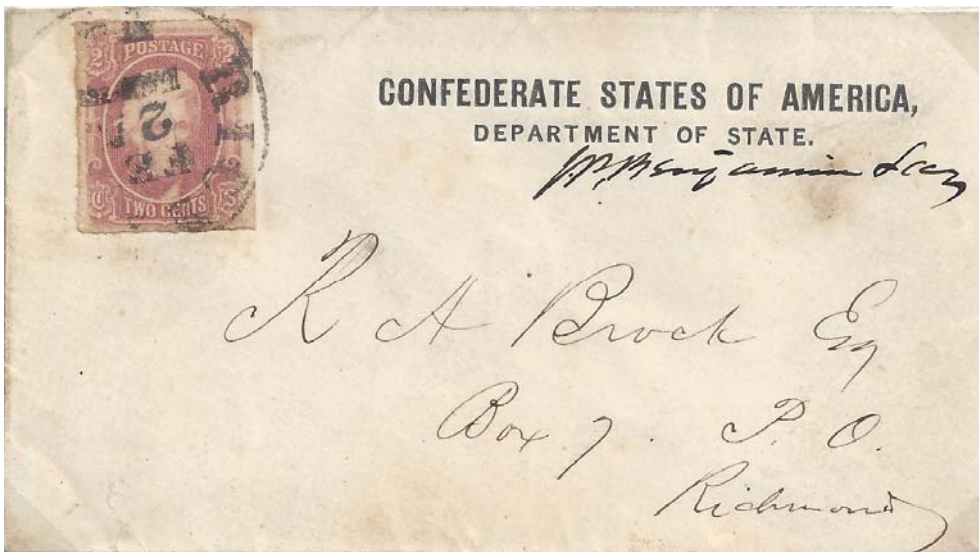 POSTAGE
2 2
FE
2
TWO CENTS
CONFEDERATE STATES OF AMERICA,
DEPARTMENT OF STATE.
J.P. Benjamin Secy
R A Brock Esq
Box 7. P. O.
Richmond